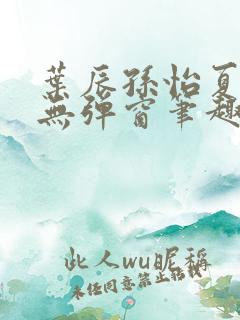 葉辰孫怡夏
無彈窗筆趣
此人wu昵稱
未经同意禁止转载